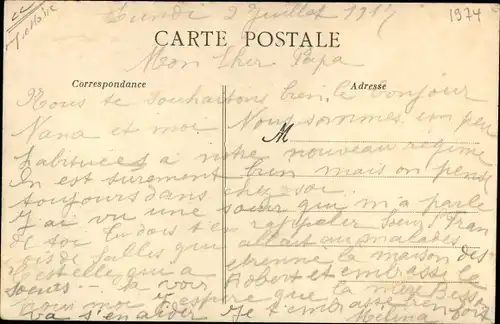 Lundi 2 Juillet 1917
1974
CARTE POSTALE
Mon Cher Papa
Correspondance
Adresse
Nous te souhaitons bien le bonjour
Nana et moi Nous sommes un peu
M
habituées à notre nouveau régime
On est surement bien mais on pense
toujours dans chez soi
J'ai vu une sœur qui m'a parlé
de toi Tu dois t'en rappeler Sœur Fran
çois de Salles qui allait aux malades
C'est elle qui a étrenné la maison des
sœurs va voir Robert et embrasse le
pour moi J'espère que la mère Besson
va s'en aider Je t'embrasse bien fort
Melina